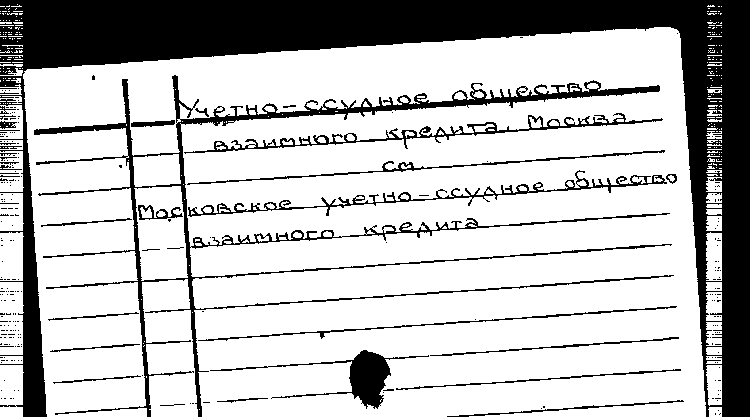 Учетно-ссудное общество
взаимного кредита. Москва.
см.
Московское учетно-ссудное общество
взаимного кредита